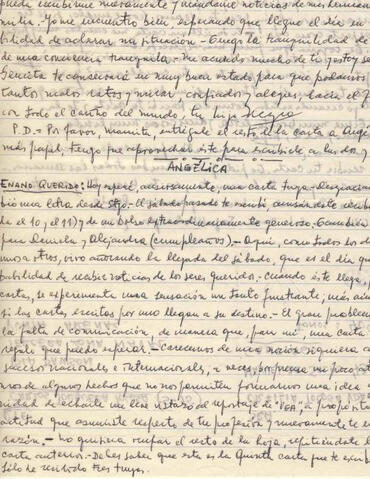 puede escribirme nuevamente y mandarme noticias de mis hermanos
milia. Yo me encuentro bien esperando que llegue el día
bilidad de aclarar mi situación.- Tengo la tranquilidad de
de una conciencia tranquila.- Me acuerdo mucho de ti y
se conservará en muy buen estado para que podamos
tantos malos ratos y mirar, confiados y alegres, hacia el f
con todo el cariño del mundo, tu hijo Negro
P.D.= Por favor, mamita, entrégale el resto de la carta a Angé
más papel, tengo que aprovechar éste para escribirle a las dos y
ANGÉLICA
ENANO QUERIDO: Hoy esperé, ansiosamente, una carta tuya. Desgraciad
bió una letra desde El sábado pasado te escribí recibí
de el 10, el 11) y de un extraordinariamente generoso.- También
para Daniela y Alejandra (cumpleaños).- Aquí, como todos los de
nosotros, vivo añorando la llegada del sábado, que es el día qu
bilidad de recibir noticias de los seres queridos.- Cuando éste llega, y
cartas, se experimenta una sensación un tanto frustrante, más aún
si las cartas escritas por uno llegan a su destino.- El gran problem
la falta de comunicación, de manera que, para mí, una carta
regalo que puedo esperar.- Carecemos de una noción siquiera
sucesos nacionales e internacionales, a veces, por prensa un poco
nos de algunos hechos que no nos permiten formarnos una idea
nidad de echarle un leve vistazo al reportaje de "VEA", a propósito
actitud que asumiste respecto de tu profesión y nuevamente te en
razón.- No quisiera ocupar el resto de la hoja, repitiéndote l
carta anterior.- Debes saber que esta es la quinta carta que te escrib
sólo he recibido tres tuyas.